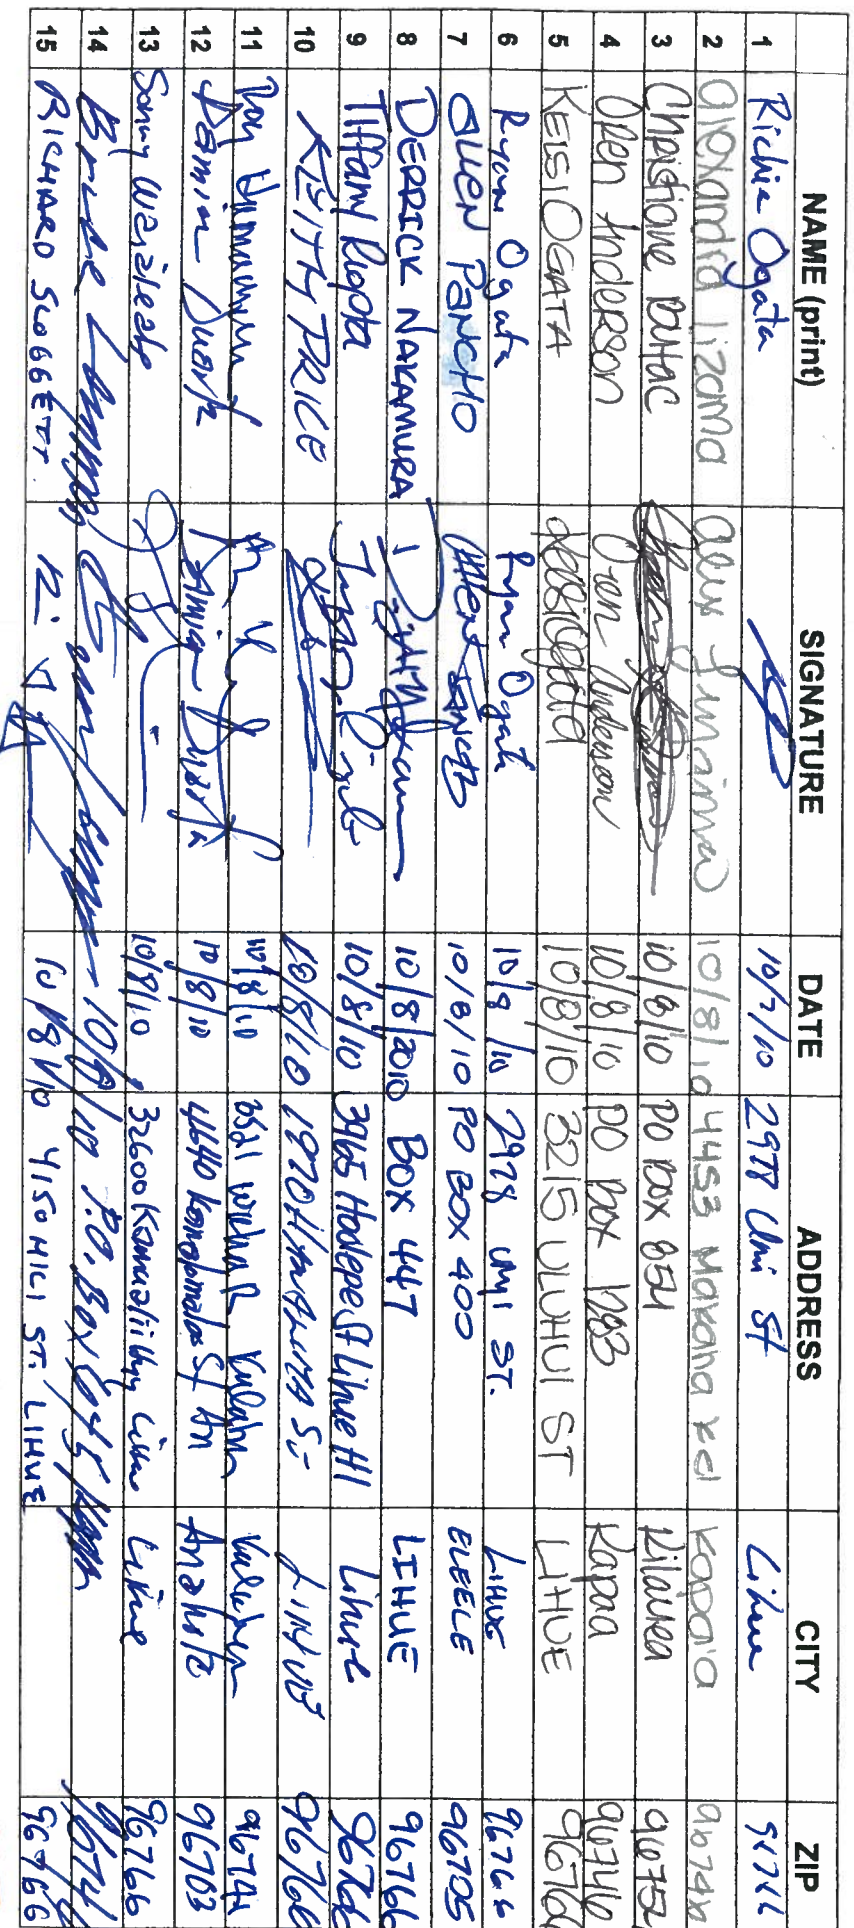 NAME (print) SIGNATURE DATE ADDRESS CITY ZIP
1 Richie Ogata 10/7/10 2978 Umi St Lihue
2 alexandra lizama alex lizama 10/8/10 4453 Makana rd kapaa
3 Christiane 10/8/10 PO BOX 854 Kilauea 96754
4 Oren Anderson Oren Anderson 10/8/10 PO Box 1283 Kapaa 96746
5 KELSI OGATA Kelsi Ogata 10/8/10 3215 ULUHUI ST LIHUE 96766
6 Ryan Ogata Ryan Ogata 10/8/10 2978 UMI ST. LIHUE 96766
7 PANCHO 10/8/10 PO BOX 400 ELEELE 96705
8 DERRICK NAKAMURA 10/8/2010 BOX 447 LIHUE 96766
9 Tiffany 10/8/10 3965 Hoolepe St Lihue HI Lihue 96766
10 KEITH PRICE 10/8/10 1970 ST LIHUE 96766
11 10/8/10 3521 96741
12 Damien Duarte Damien Duarte 10/8/10 4640 St An Anahola 96703
13 Sonny 10/8/10 Lihue Lihue 96766
14 Bruce 10/8/10 P.O. Box 96741
15 RICHARD SCOGGETT 10/8/10 4150 HILI ST. LIHUE 96766